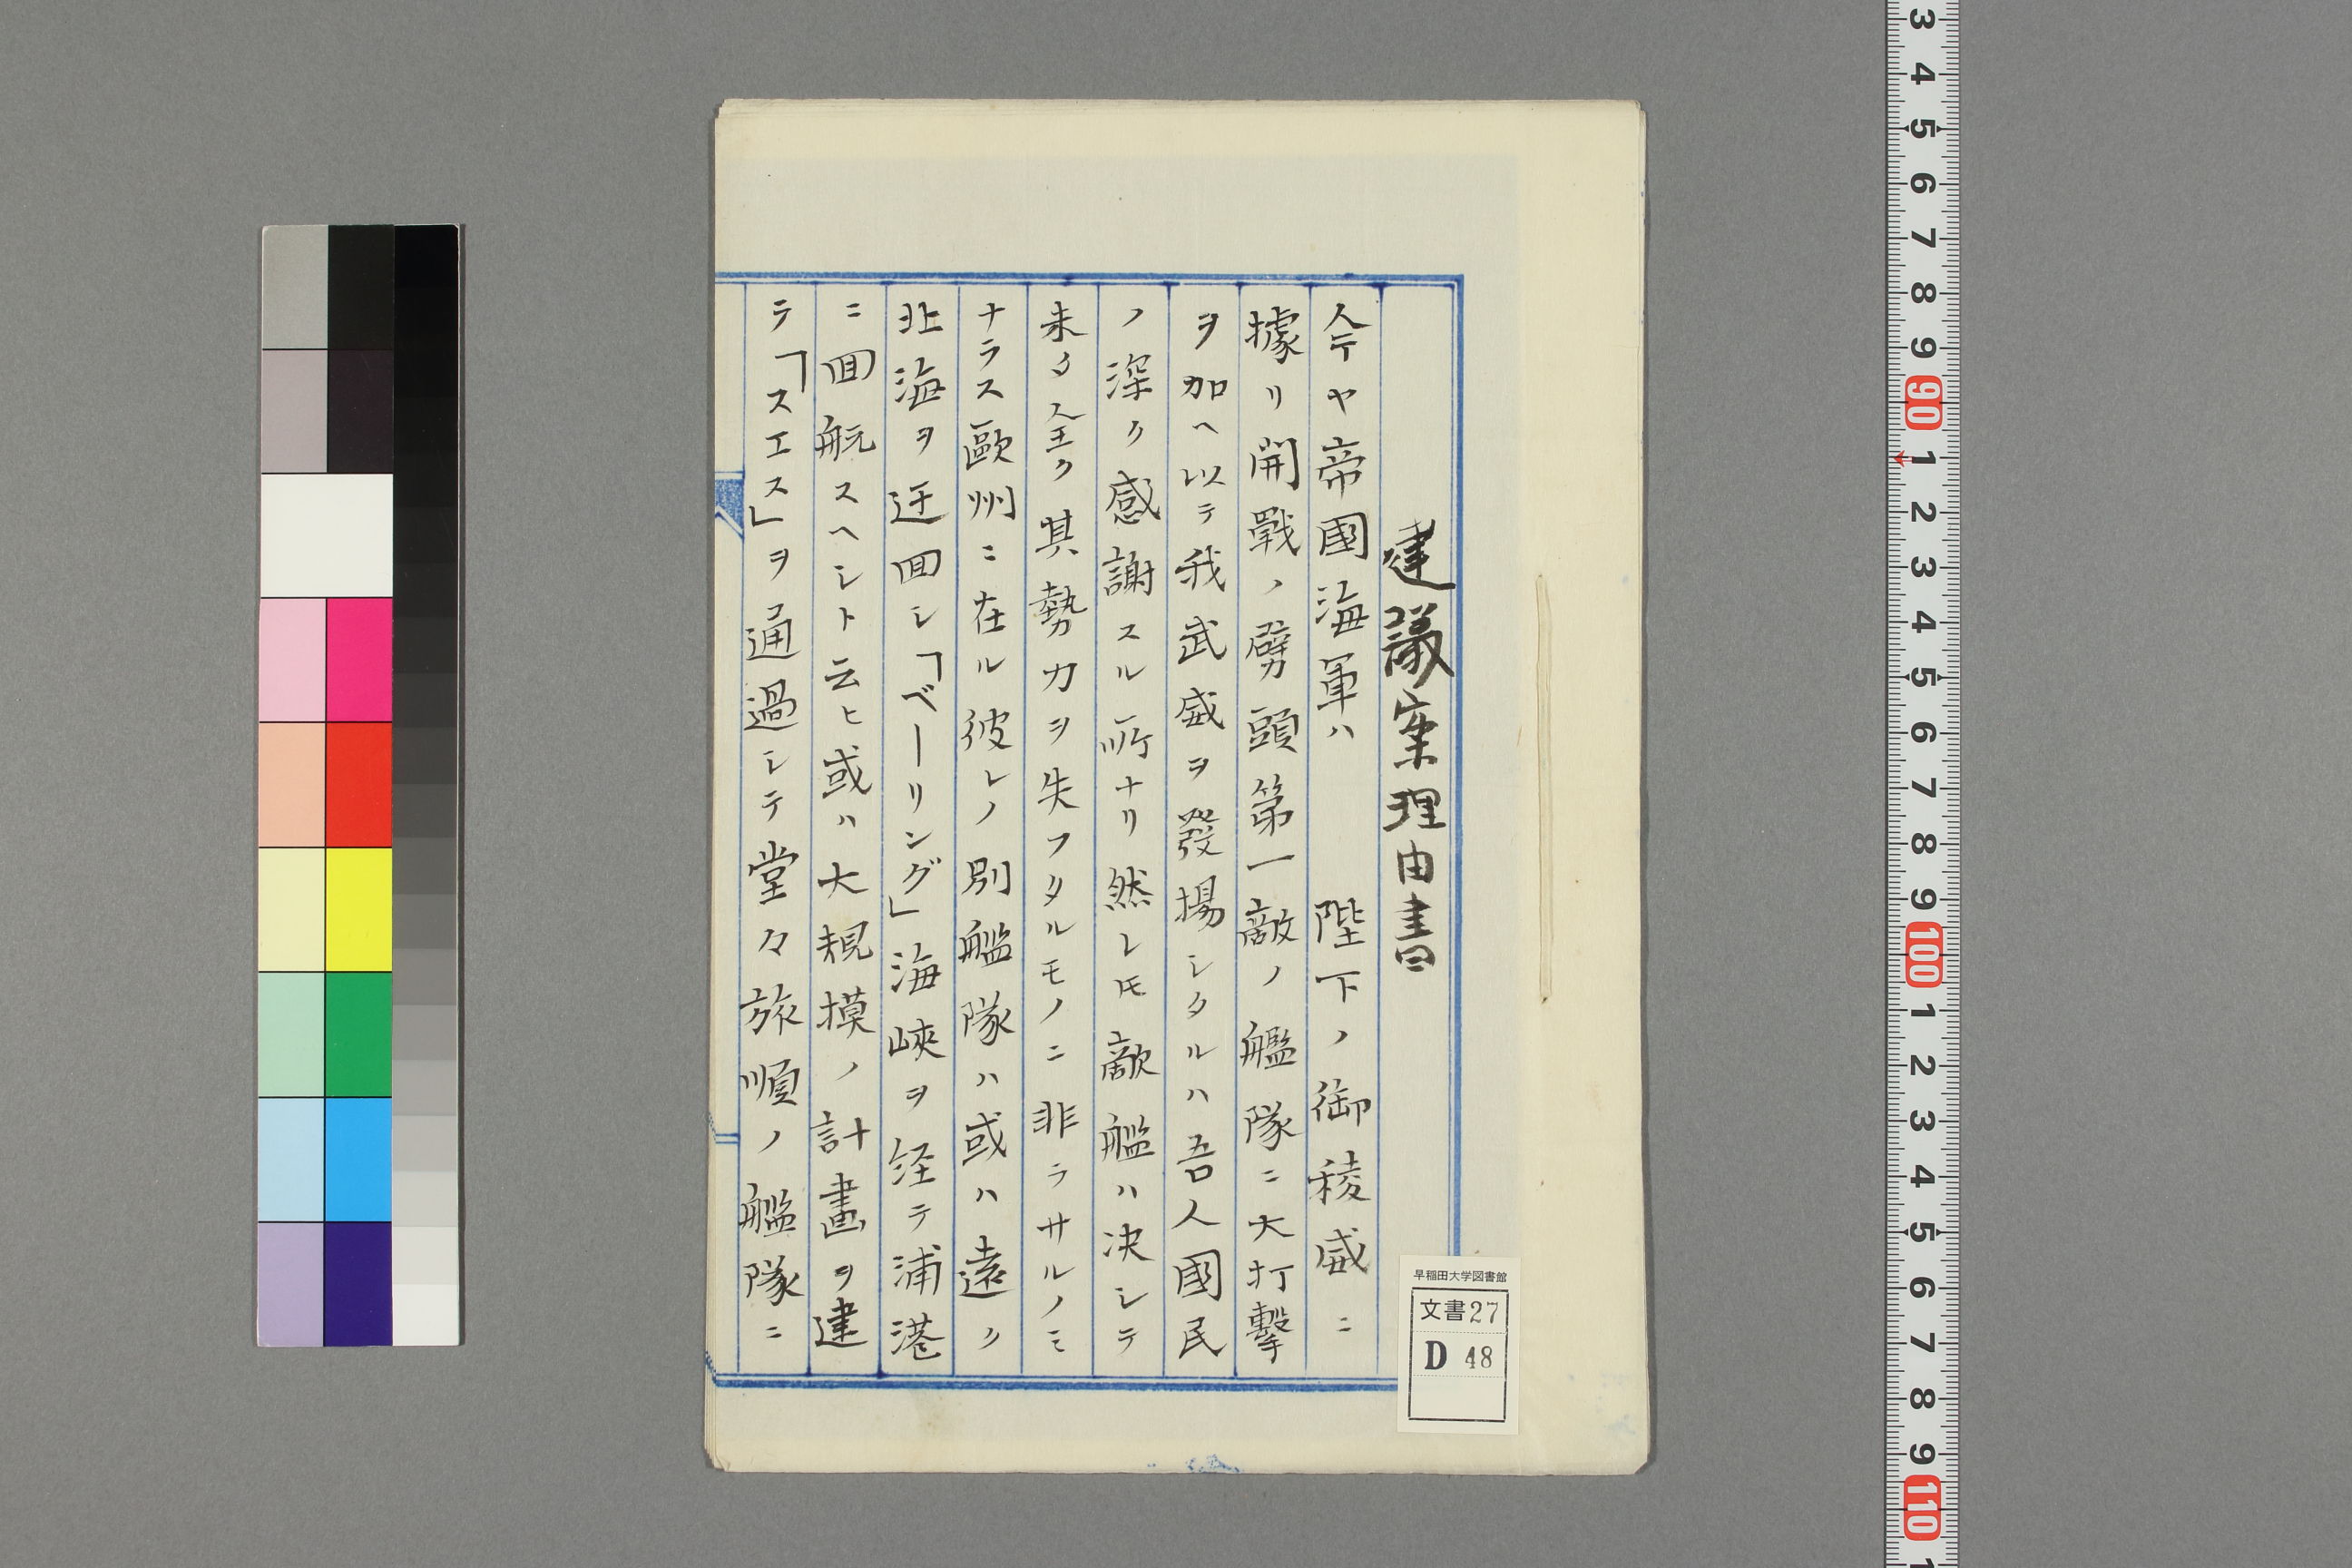 建議案理由書
今ヤ帝國海軍ハ　陛下ノ御稜威ニ
據リ開戰ノ劈頭第一敵ノ艦隊ニ大打擊
ヲ加ヘ以テ我武威ヲ發揚シタルハ吾人國民
ノ深ク感謝スル所ナリ然レ𪜈敵艦ハ决シテ
未タ全ク其勢力ヲ失フタルモノニ非ラサルノミ
ナラス歐州ニ在ル彼レノ別艦隊ハ或ハ遠ク
北海ヲ迂回シ「ベーリング」海峽ヲ経テ浦港
ニ回航スヘシト云ヒ或ハ大規摸ノ計畫ヲ建
テ「スエス」ヲ通過シテ堂々旅順ノ艦隊ニ
早稲田大学図書館
文書27
D 48
3 4 5 6 7 8 9 90 1 2 3 4 5 6 7 8 9 100 1 2 3 4 5 6 7 8 9 110